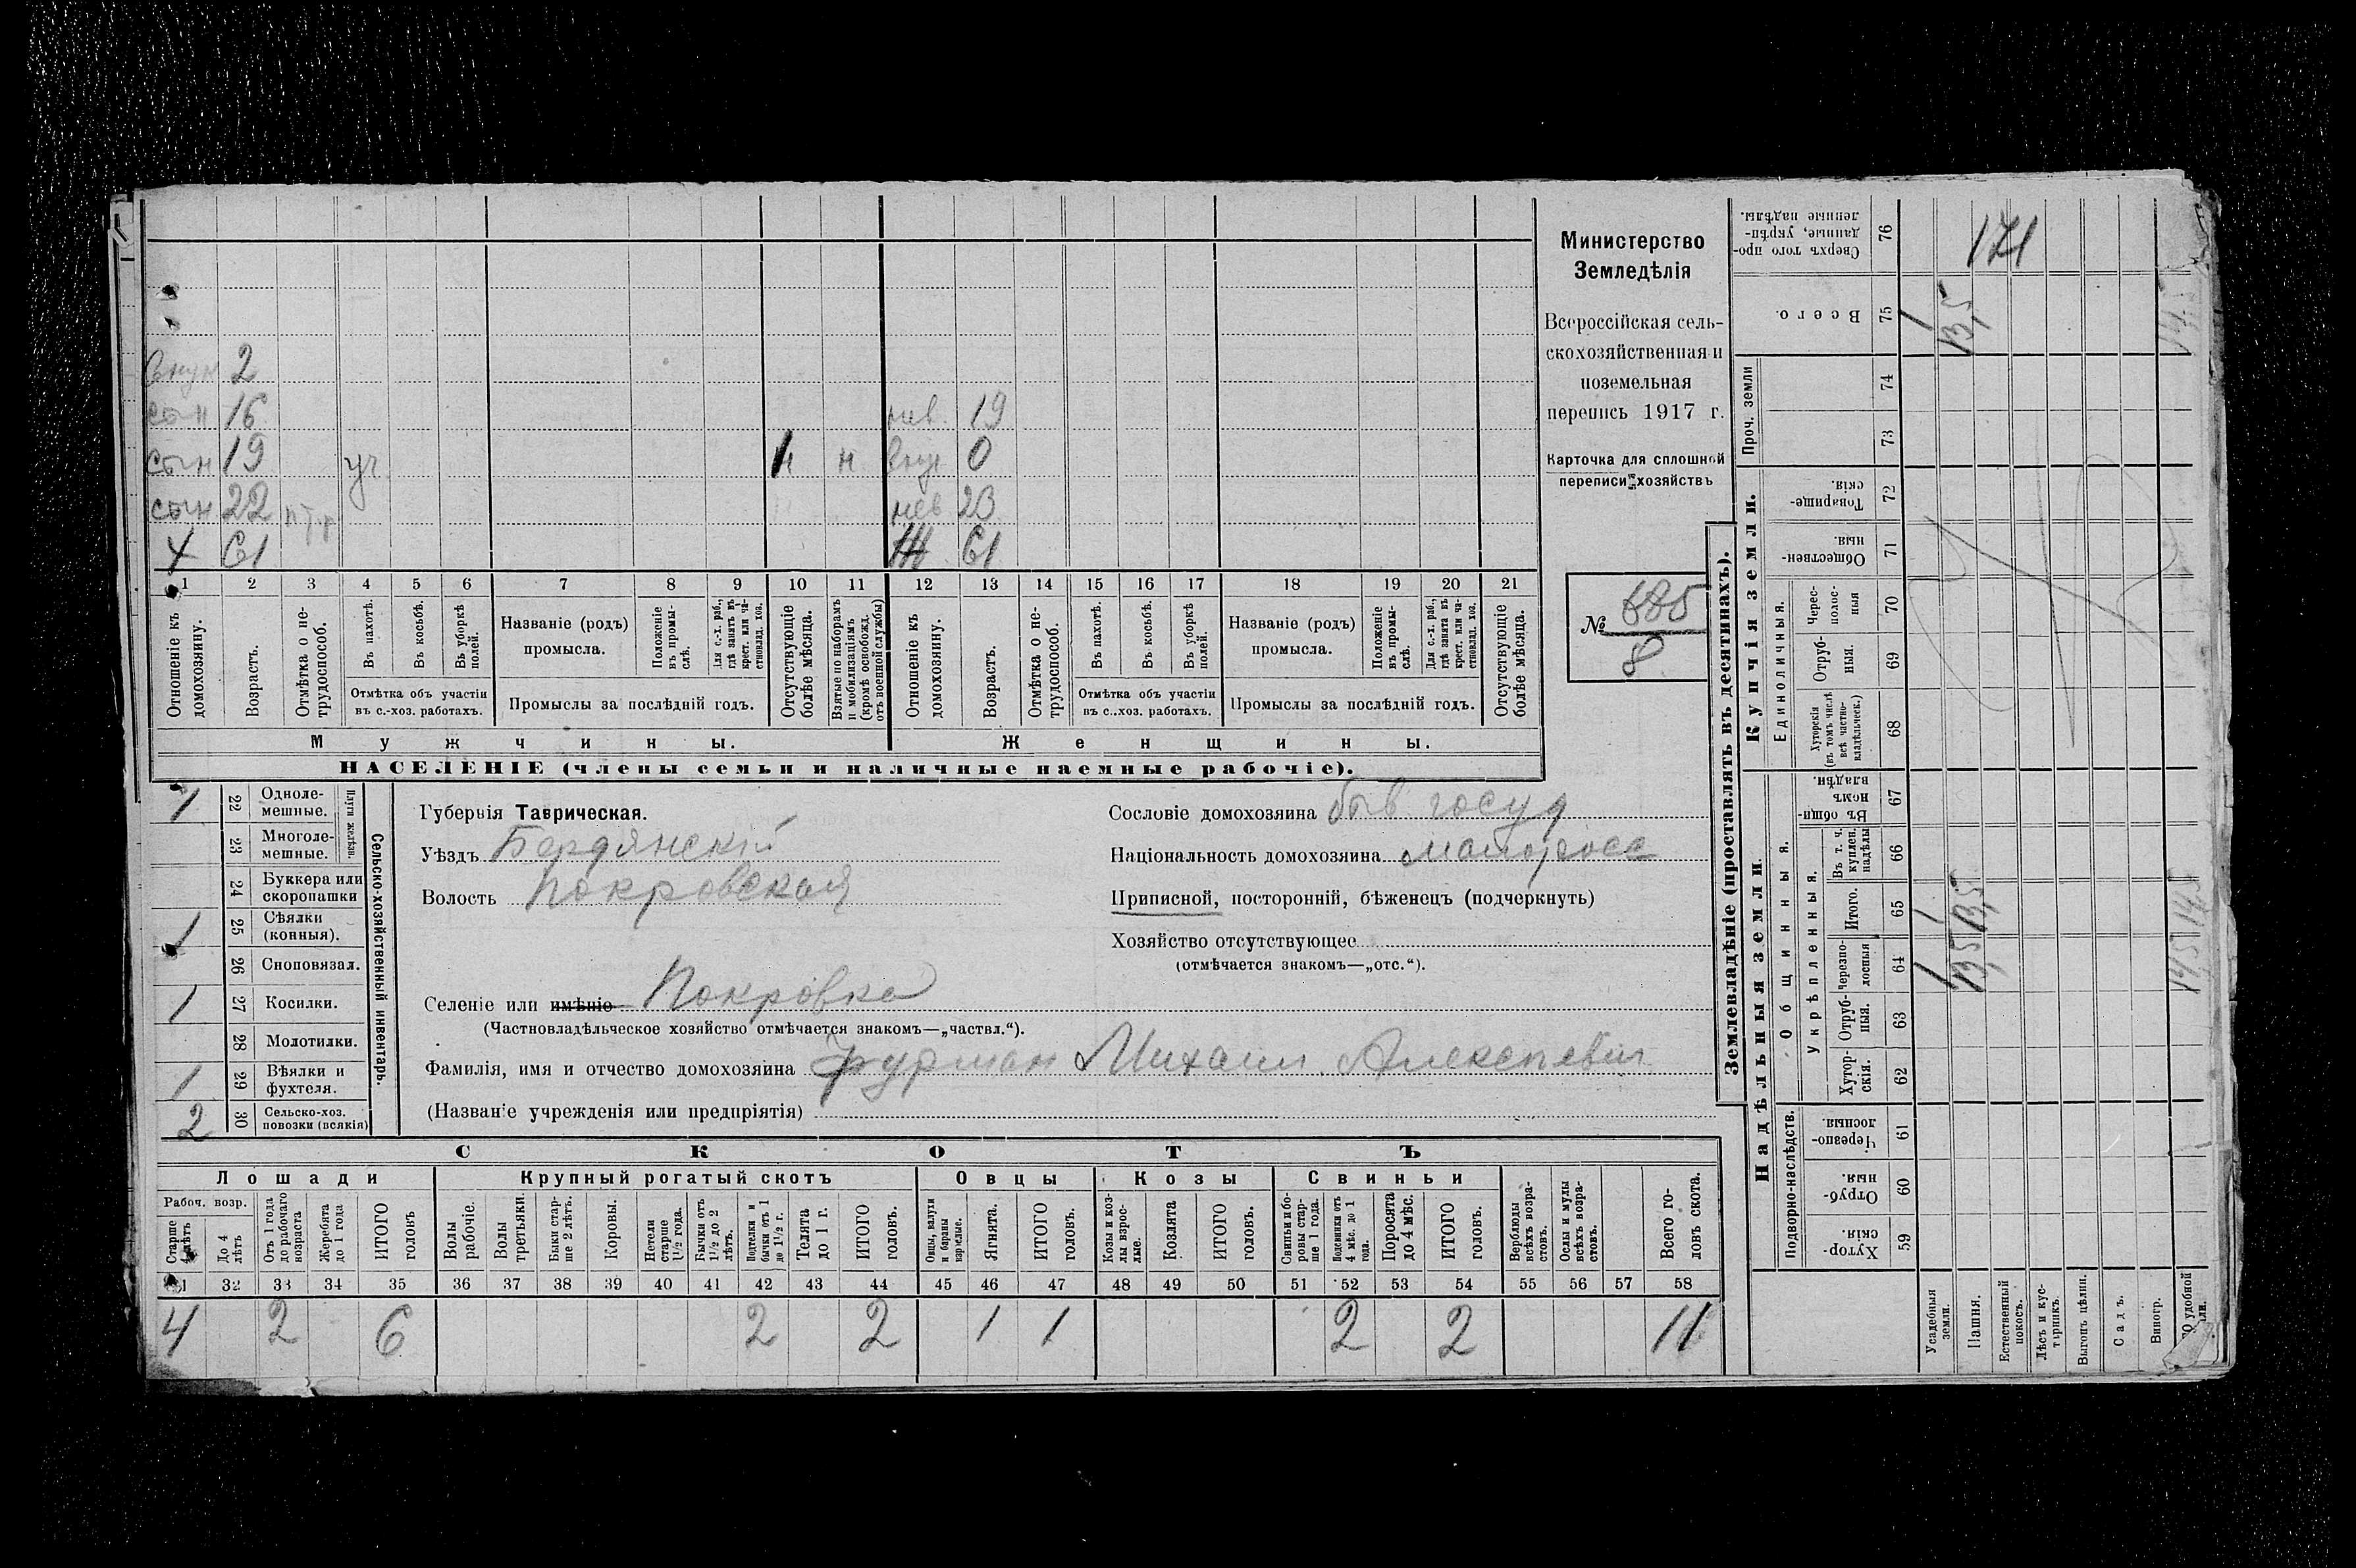 внук 2
сын 16 нев. 19
сын 19 уч н н внуч 0
сын 22 нев 23
Х 61 Ж 61
1 2 3 4 5 6 7 8 9 10 11 12 13 14 15 16 17 18 19 20 21
Отношеніе къ домохозяину.
Возрастъ.
Отмѣтка о не-трудоспособ.
Въ пахотѣ.
Въ косьбѣ.
Въ уборкѣ полей.
Отмѣтка объ участіи въ с.-хоз. работахъ.
Названіе (родъ) промысла.
Положеніе въ промы-слѣ.
Для с.-х. раб., гдѣ занятъ въ крест. или ча-стновлад. хоз.
Промыслы за послѣдній годъ.
Отсутствующіе болѣе мѣсяца.
Взятые по наборамъ и мобилизаціямъ (кромѣ освобожд. отъ военной службы)
Отношеніе къ домохозяину.
Возрастъ.
Отмѣтка о не-трудоспособ.
Въ пахотѣ.
Въ косьбѣ.
Въ уборкѣ полей.
Отмѣтка объ участіи въ с.-хоз. работахъ.
Названіе (родъ) промысла.
Положеніе въ промы-слѣ.
Для с.-х. раб., гдѣ занята въ крест. или ча-стновлад. хоз.
Промыслы за послѣдній годъ.
Отсутствующіе болѣе мѣсяца.
Мужчины. Женщины.
НАСЕЛЕНІЕ (члены семьи и наличные наемные рабочіе).
Министерство
Земледѣлія
Всероссійская сель-
скохозяйственная и
поземельная
перепись 1917 г.
Карточка для сплошной
переписи хозяйствъ
№ 685
8
Сельско-хозяйственный инвентарь.
Плуги желѣзн.
1 22 Одноле-мешные.
23 Многоле-мешные.
24 Буккера или скоропашки
1 25 Сѣялки (конныя).
26 Сноповязал.
1 27 Косилки.
28 Молотилки.
1 29 Вѣялки и фухтеля.
2 30 Сельско-хоз. повозки (всякія)
Губернія Таврическая.
Уѣздъ Бердянскій
Волость Покровская
Селеніе или имѣніе Покровка
(Частновладѣльческое хозяйство отмѣчается знакомъ—„частвл.“).
Фамилія, имя и отчество домохозяина Фурман Михаил Алексѣевич
(Названіе учрежденія или предпріятія)
Сословіе домохозяина быв госуд
Національность домохозяина малоросс
Приписной, посторонній, бѣженецъ (подчеркнуть)
Хозяйство отсутствующее
(отмѣчается знакомъ—„отс.“).
СКОТЪ
Лошади Крупный рогатый скотъ Овцы Козы Свиньи
Рабоч. возр.
Старше 4 лѣтъ
До 4 лѣтъ
Отъ 1 года до рабочаго возраста
Жеребята до 1 года
ИТОГО головъ
Волы рабочіе.
Волы третьяки.
Быки стар-ше 2 лѣтъ.
Коровы.
Нетели старше 1½ года.
Бычки отъ 1½ до 2 лѣтъ.
Подтелки и бычки отъ 1 до 1½ г.
Телята до 1 г.
ИТОГО головъ.
Овцы, валухи и бараны взрослые.
Ягнята.
ИТОГО головъ.
Козы и коз-лы взрос-лые.
Козлята
ИТОГО головъ.
Свиньи и бо-ровы стар-ше 1 года.
Подсвинки отъ 4 мѣс. до 1 года.
Поросята до 4 мѣс.
ИТОГО головъ.
Верблюды всѣхъ возра-стовъ.
Ослы и мулы всѣхъ возра-стовъ.
Всего го-ловъ скота.
31 32 33 34 35 36 37 38 39 40 41 42 43 44 45 46 47 48 49 50 51 52 53 54 55 56 57 58
4 2 6 2 2 1 1 2 2 11
Землевладѣніе (проставлять въ десятинахъ).
Надѣльныя земли Купчія земли.
Подворно-наслѣдств.
Общинныя.
Укрѣпленныя.
Единоличныя.
Проч. земли
Хутор-скія. 59
Отруб-ныя. 60
Черезпо-лосныя. 61
Хутор-скія. 62
Отруб-ныя. 63
Черезпо-лосныя 64
Итого. 65
Въ т. ч. куплен. надѣлы 66
Въ общин-номъ владѣн. 67
Хуторскія (въ томъ числѣ всѣ частно-владѣльческ.) 68
Отруб-ныя. 69
Черес-полос-ныя 70
Обществен-ныя. 71
Товарище-скія. 72
73
74
Всего. 75
Сверхъ того про-данные, укрѣп-ленные надѣлы. 76
171
Усадебныя земли. 1 1 1
Пашня. 13,5 13,5 13,5
Естественный покосъ.
Лѣсъ и кус-тарникъ.
Выгонъ цѣлин.
Садъ.
Виногр.
удобной 14,5 14,5 14,5